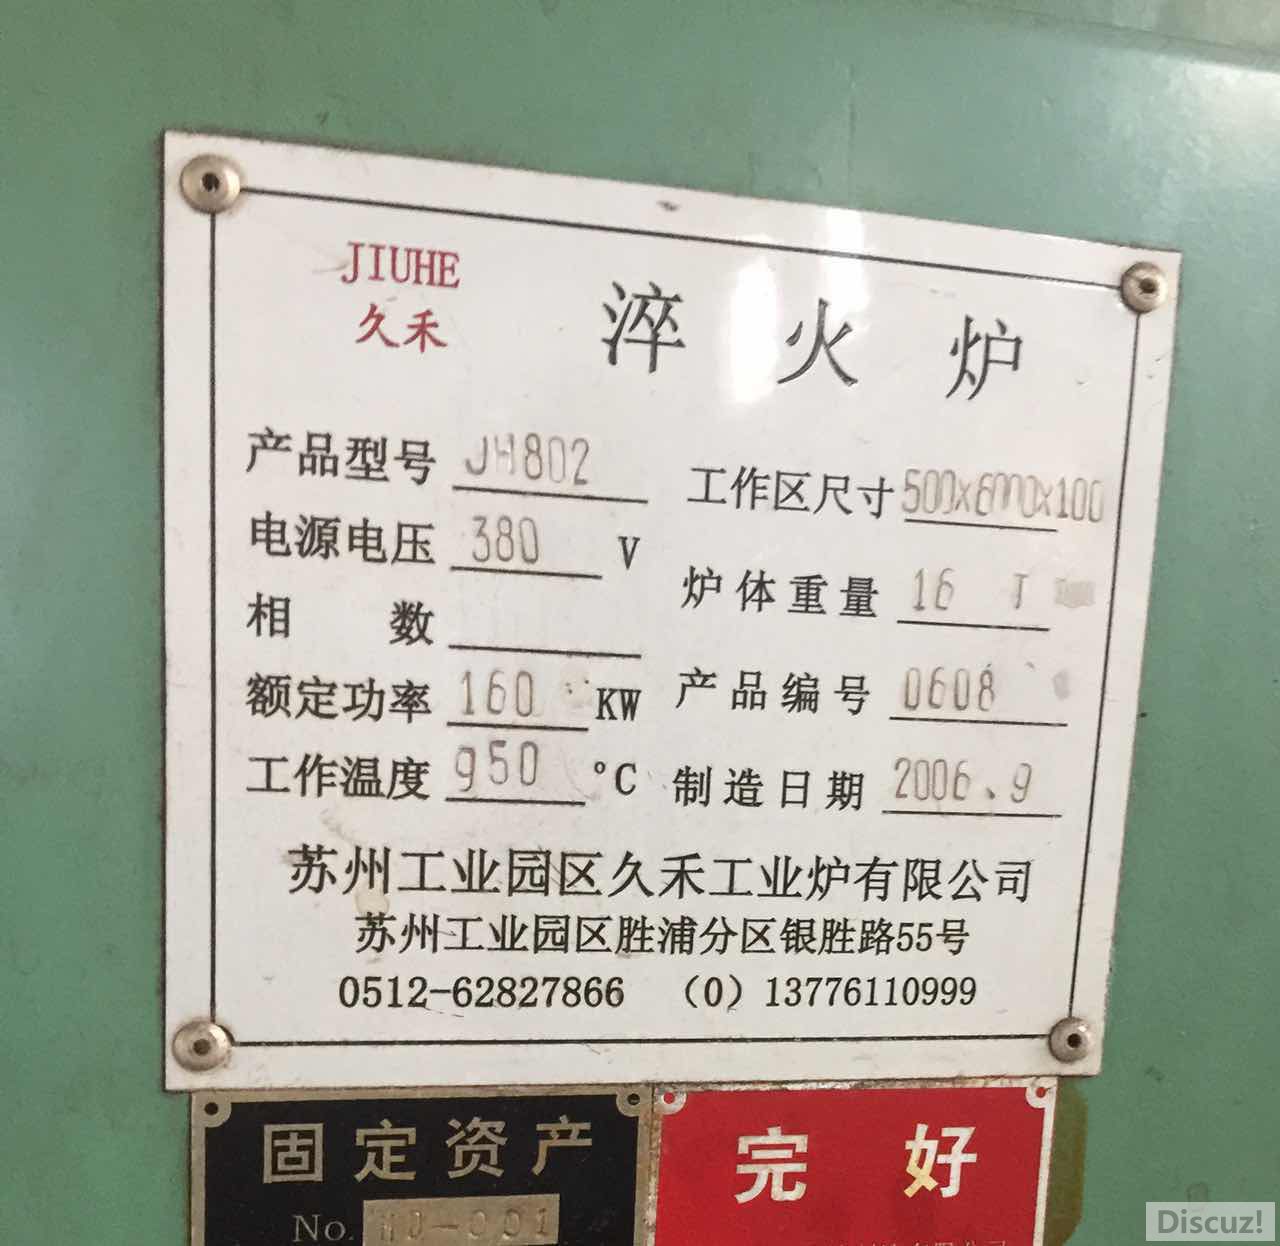 JIUHE
久禾
淬火炉
产品型号 JH802
工作区尺寸 500x6000x100
电源电压 380 V
炉体重量 16 T
相数
产品编号 0608
额定功率 160 KW
工作温度 950 ℃
制造日期 2006.9
苏州工业园区久禾工业炉有限公司
苏州工业园区胜浦分区银胜路55号
0512-62827866 （0）13776110999
固定资产
No. -001
完好
Discuz!